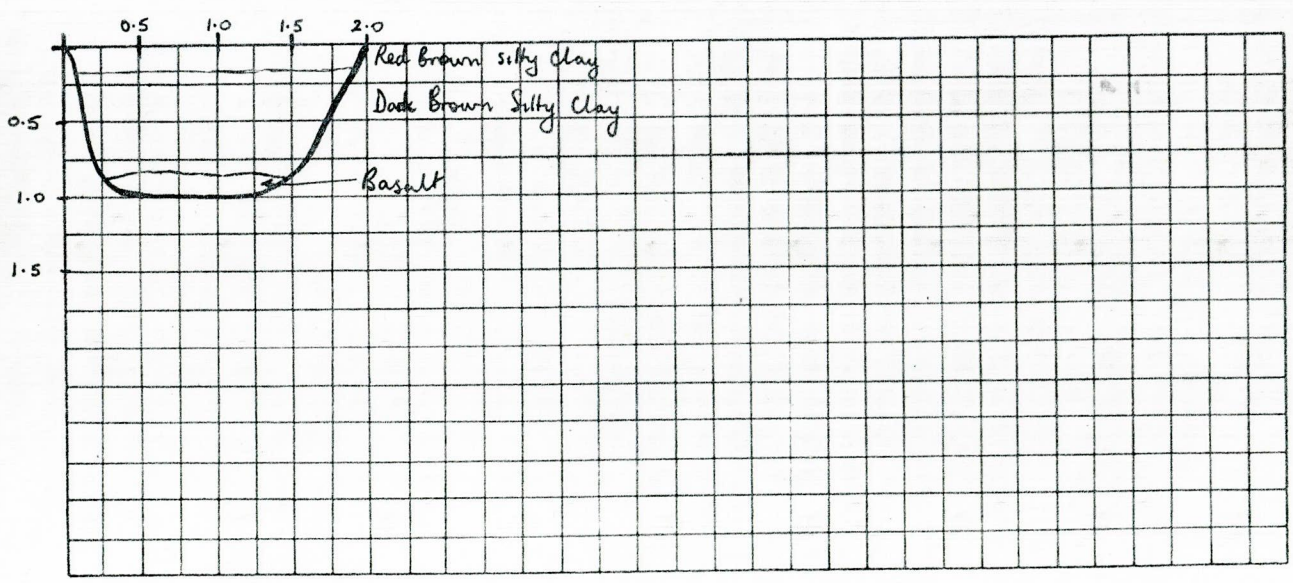 0.5 1.0 1.5 2.0
Red Brown silty Clay
Dark Brown Silty Clay
0.5
Basalt
1.0
1.5